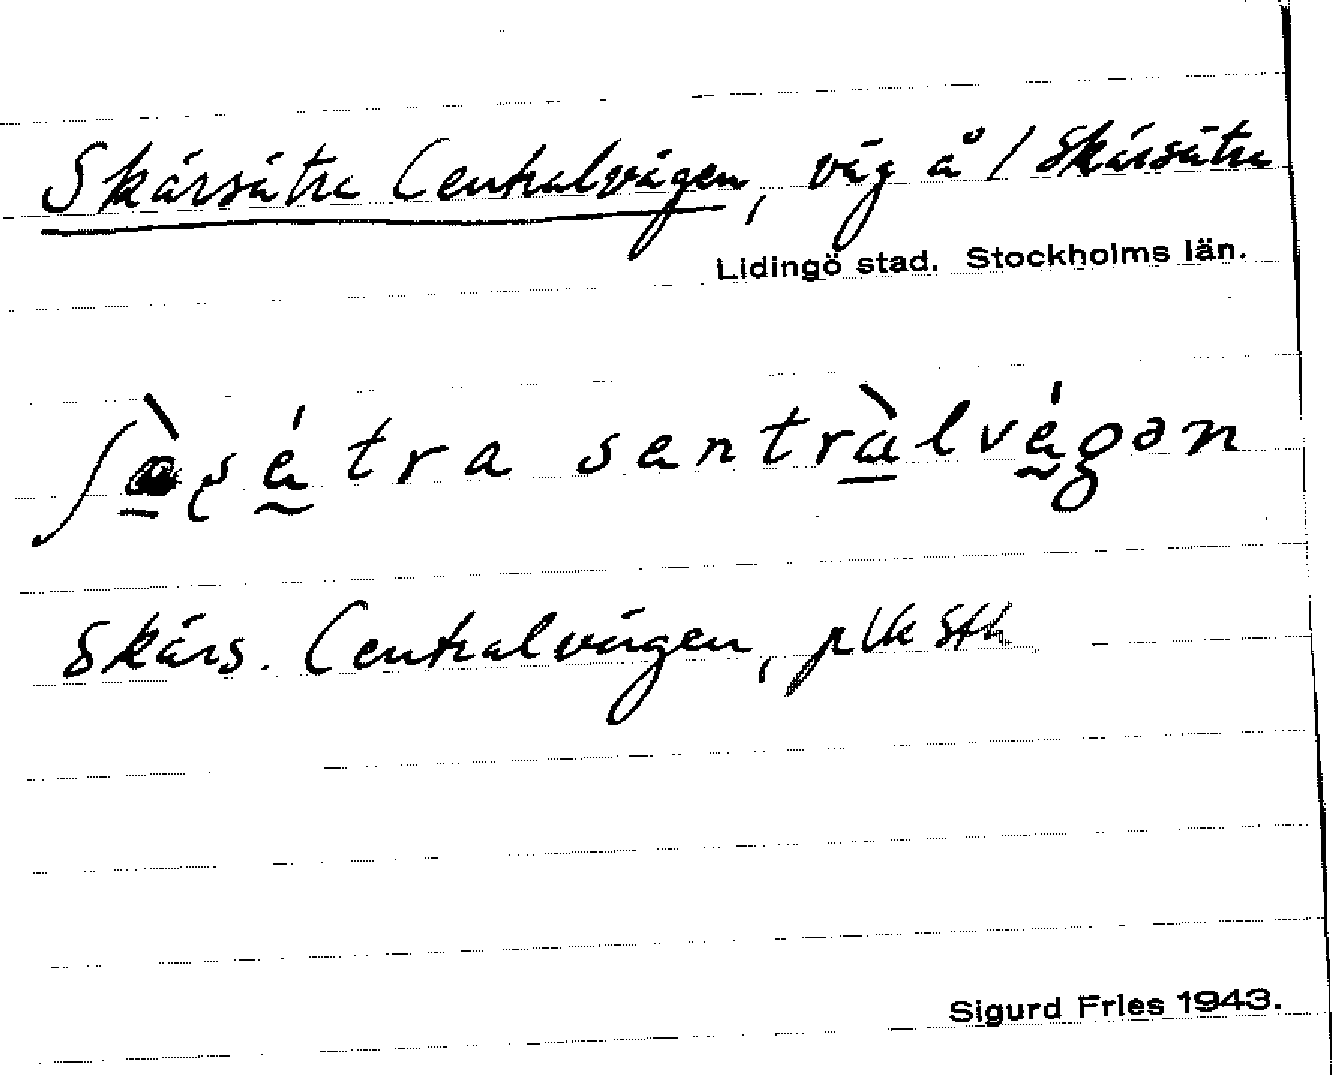 Skärsätra Centralvägen, väg å / Skärsätra
Lidingö stad. Stockholms län.
sentràlvǽgən
Skärs. Centralvägen,
Sigurd Fries 1943.